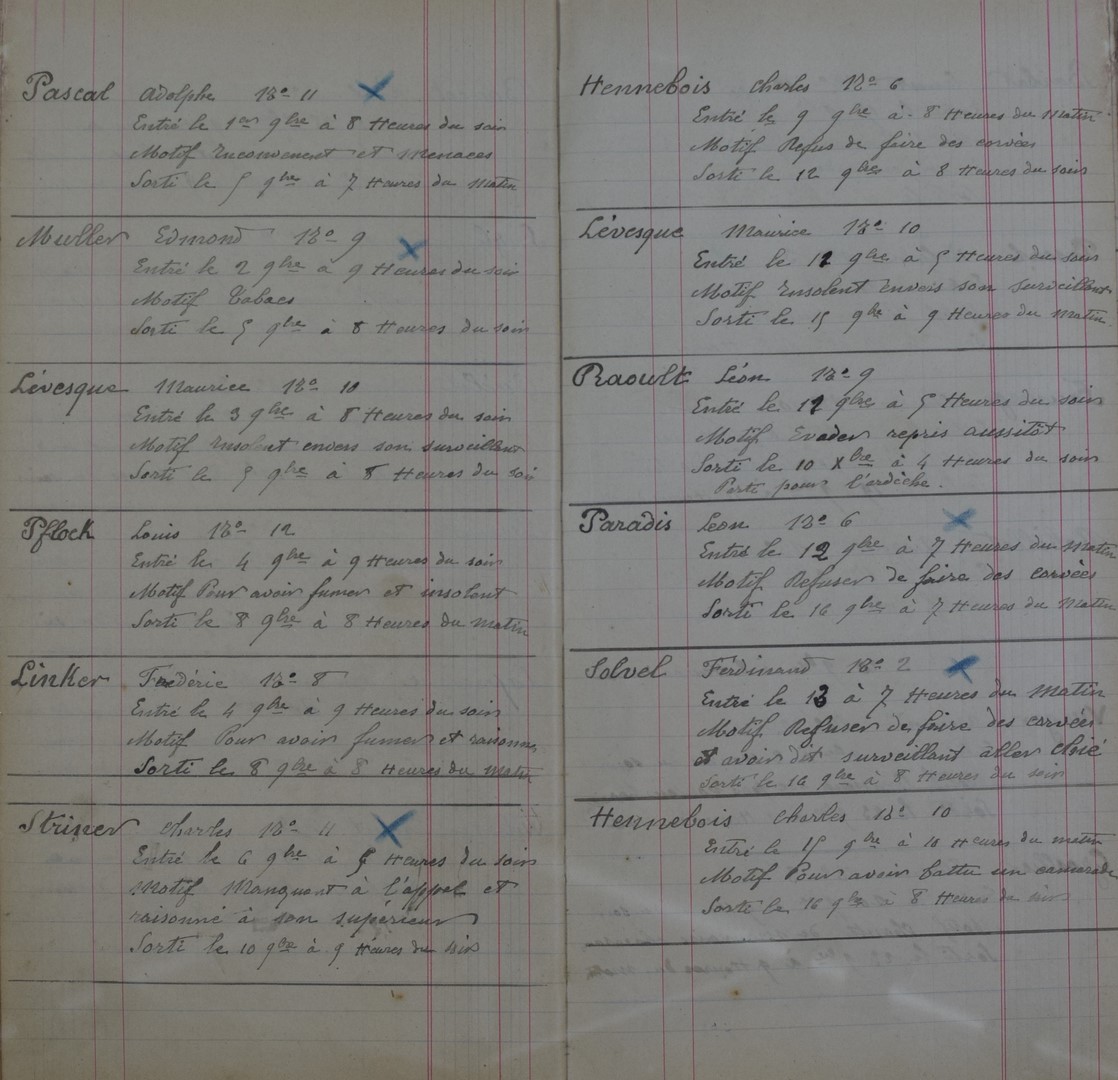 Pascal Adolphe 13e 11
Entré le 1er 9bre à 8 Heures du soir
Motif Inconvenent et Menaces
Sorti le 5 9bre à 7 Heures du Matin
Muller Edmond 13e 9
Entré le 2 9bre à 9 Heures du soir
Motif Tabacs
Sorti le 5 9bre à 8 Heures du soir
Lévesque Maurice 13e 10
Entré le 3 9bre à 8 Heures du soir
Motif Insolent envers son surveillant
Sorti le 5 9bre à 8 Heures du soir
Pflock Louis 13e 12
Entré le 4 9bre à 9 Heures du soir
Motif Pour avoir fumer et insolent
Sorti le 8 9bre à 8 Heures du matin
Linker Fredéric 13e 8
Entré le 4 9bre à 9 Heures du soir
Motif Pour avoir fumer et raisonner
Sorti le 8 9bre à 8 Heures du Matin
Striner Charles 13e 11
Entré le 6 9bre à Heures du soir
Motif Manquent à l'appel et
raisonné à son supérieur
Sorti le 10 9bre à 9 Heures du soir
Hennebois Charles 13e 6
Entré le 9 9bre à 8 Heures du Matin
Motif Refus de faire des corvées
Sorti le 12 9bre à 8 Heures du soir
Lévesque Maurice 13e 10
Entré le 12 9bre à 5 Heures du soir
Motif Insolent envers son surveillant
Sorti le 15 9bre à 9 Heures du Matin
Raoult Léon 13e 9
Entré le 12 9bre à 5 Heures du soir
Motif Evader repris aussitôt
Sorti le 10 Xbre à 4 Heures du soir
Parti pour l'ardèche.
Paradis Leon 13e 6
Entré le 12 9bre à 7 Heures du Matin
Motif Refuser de faire des corvées
Sorti le 16 9bre à 7 Heures du Matin
Solvel Ferdinand 13e 2
Entré le 13 à 7 Heures du Matin
Motif Refuser de faire des corvées
et avoir dit surveillant aller chié
Sorti le 16 9bre à 8 Heures du soir
Hennebois Charles 13e 10
Entré le 15 9bre à 10 Heures du matin
Motif Pour avoir battu un camarade
Sorti le 16 9bre à 8 Heures du soir